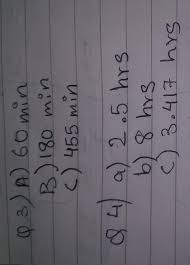 Q 3) A) 60 min
B) 180 min
C) 455 min
Q 4) a) 2.5 hrs
b) 8 hrs
c) 3.417 hrs